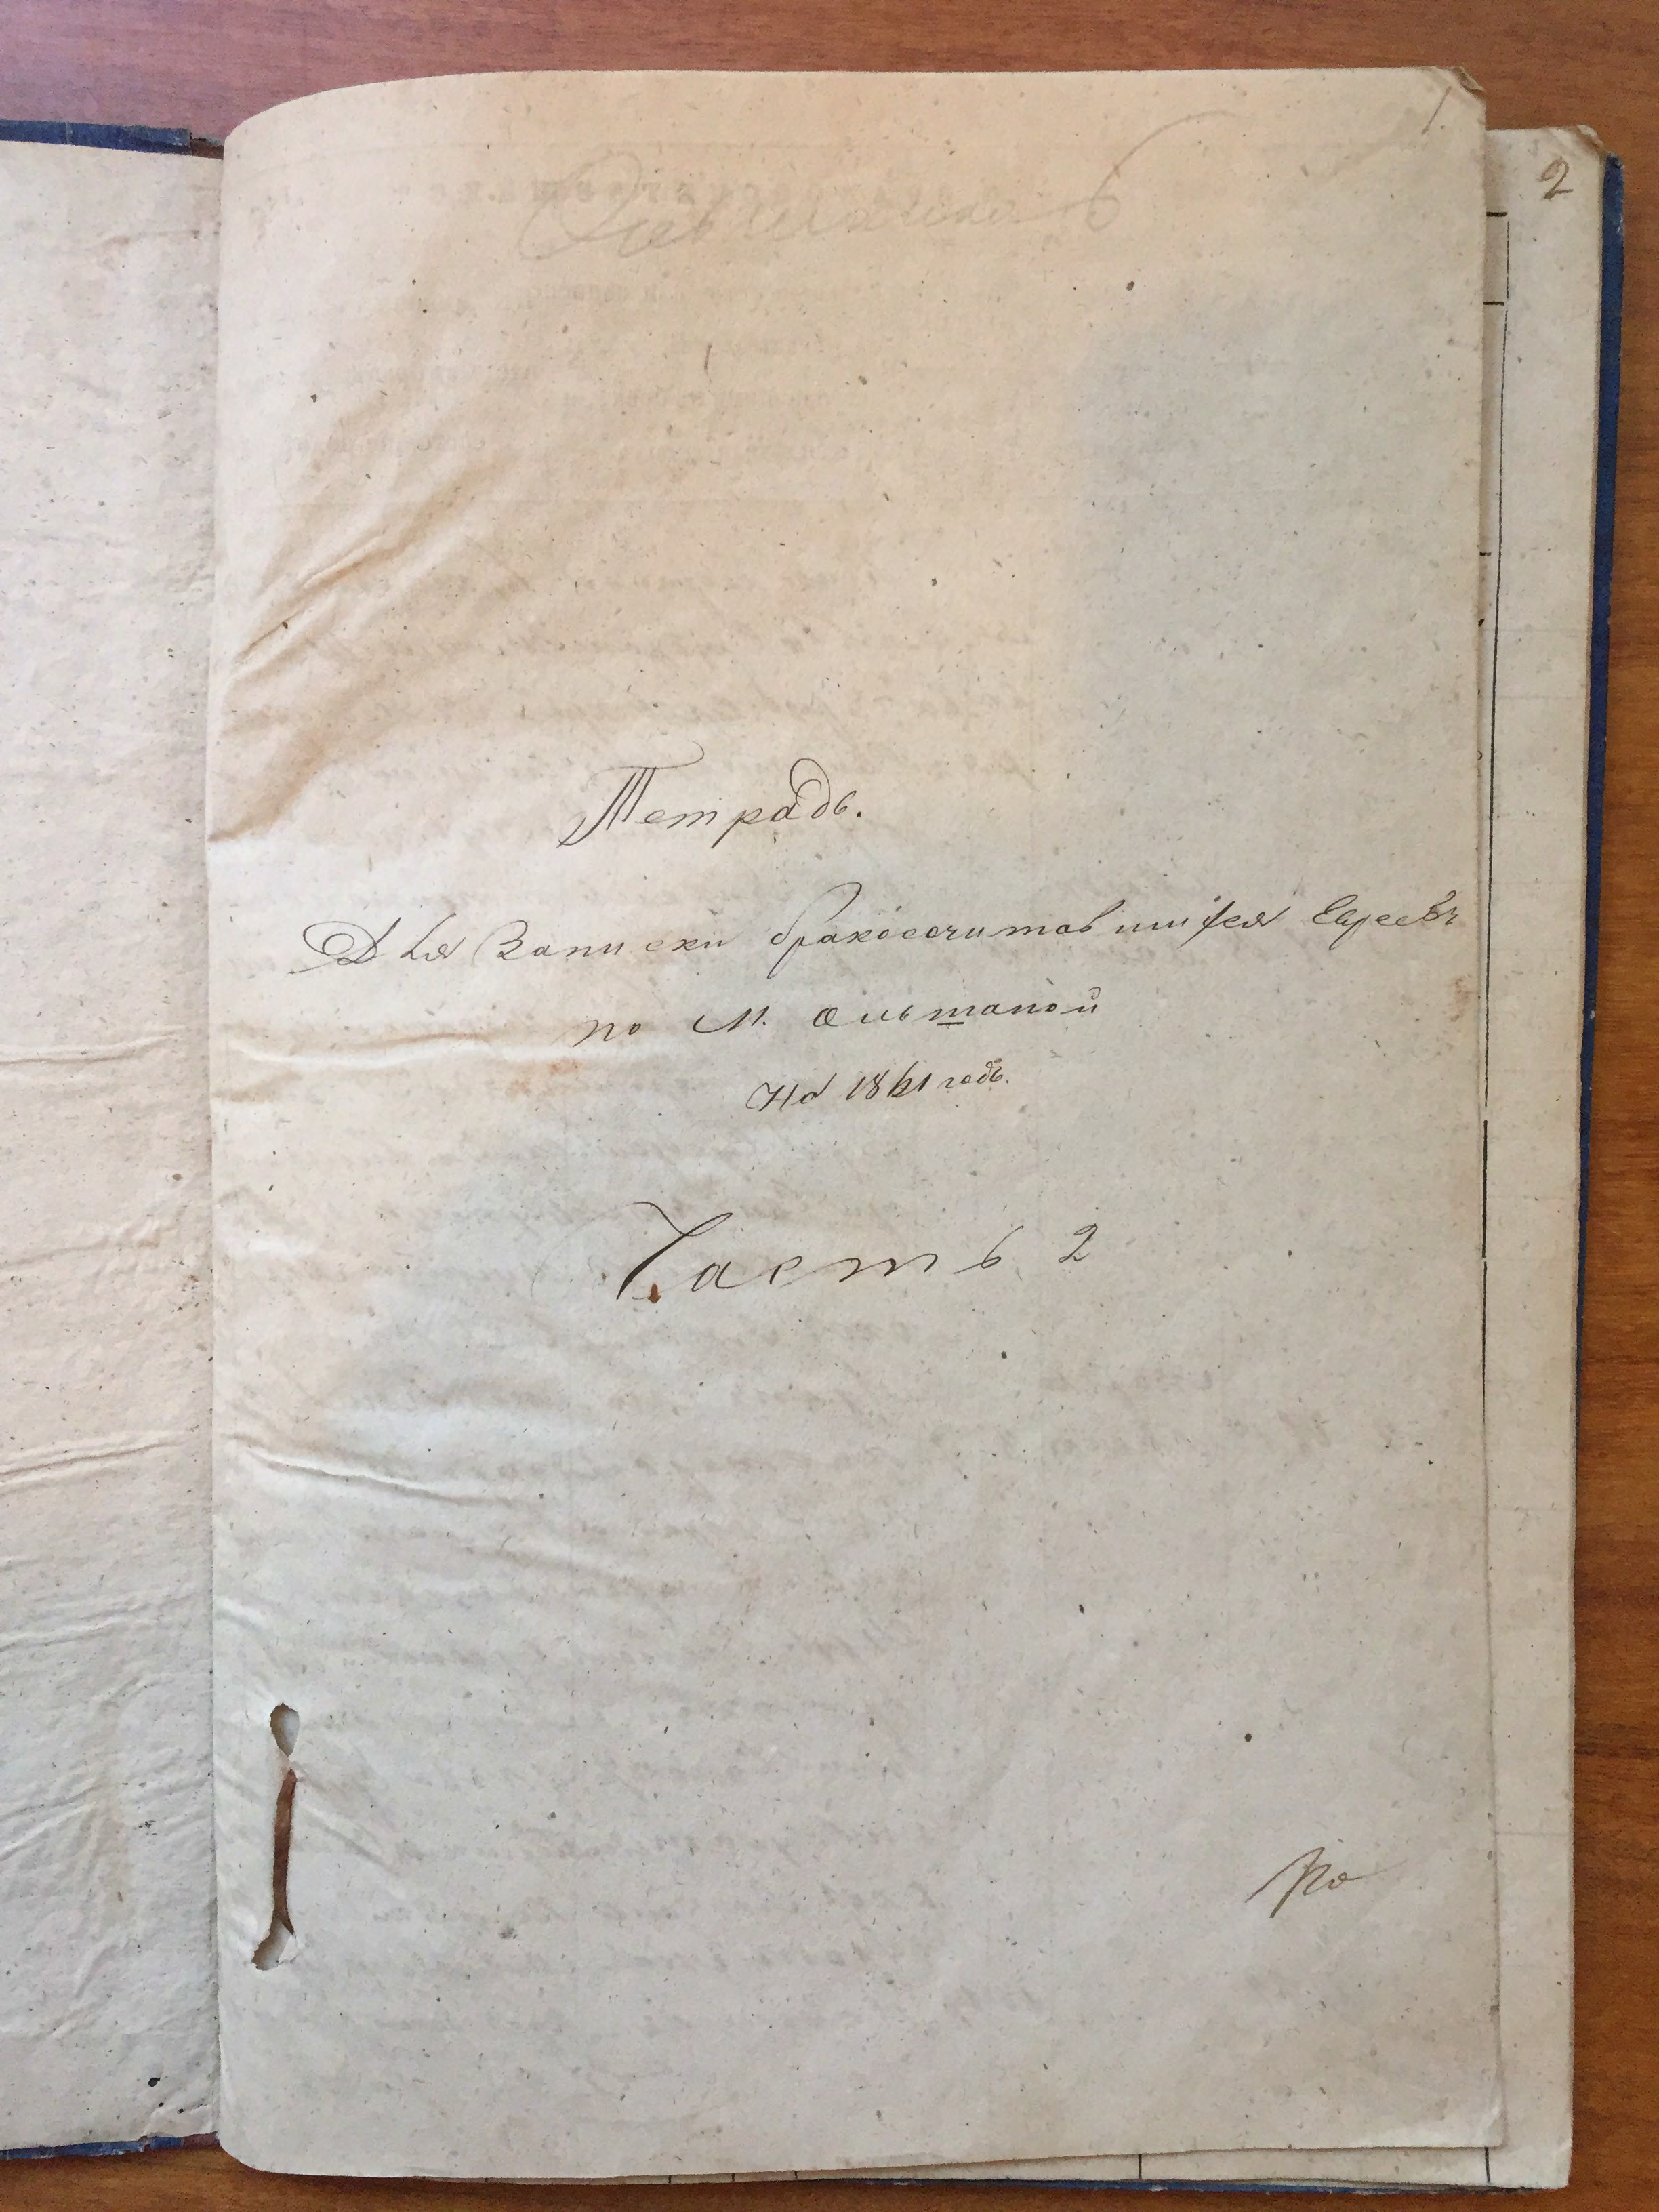 1.
2
Тетрадь.
Для Записки бракосочитавшихся Евреевъ
по М. Ольшаной
На 1861 годъ.
Часть 2
По